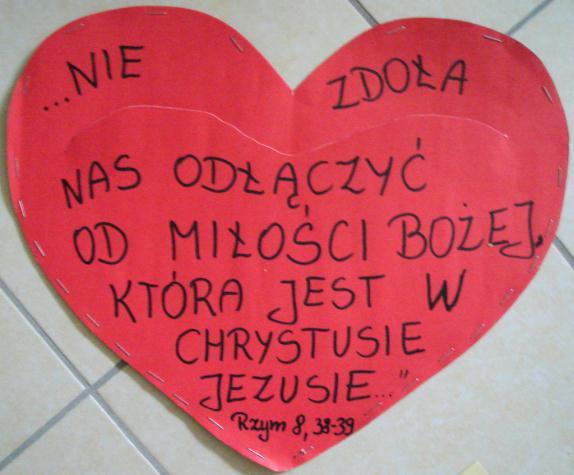 ...NIE ZDOŁA
NAS ODŁĄCZYĆ
OD MIŁOŚCI BOŻEJ,
KTÓRA JEST W
CHRYSTUSIE
JEZUSIE..."
Rzym 8, 38-39